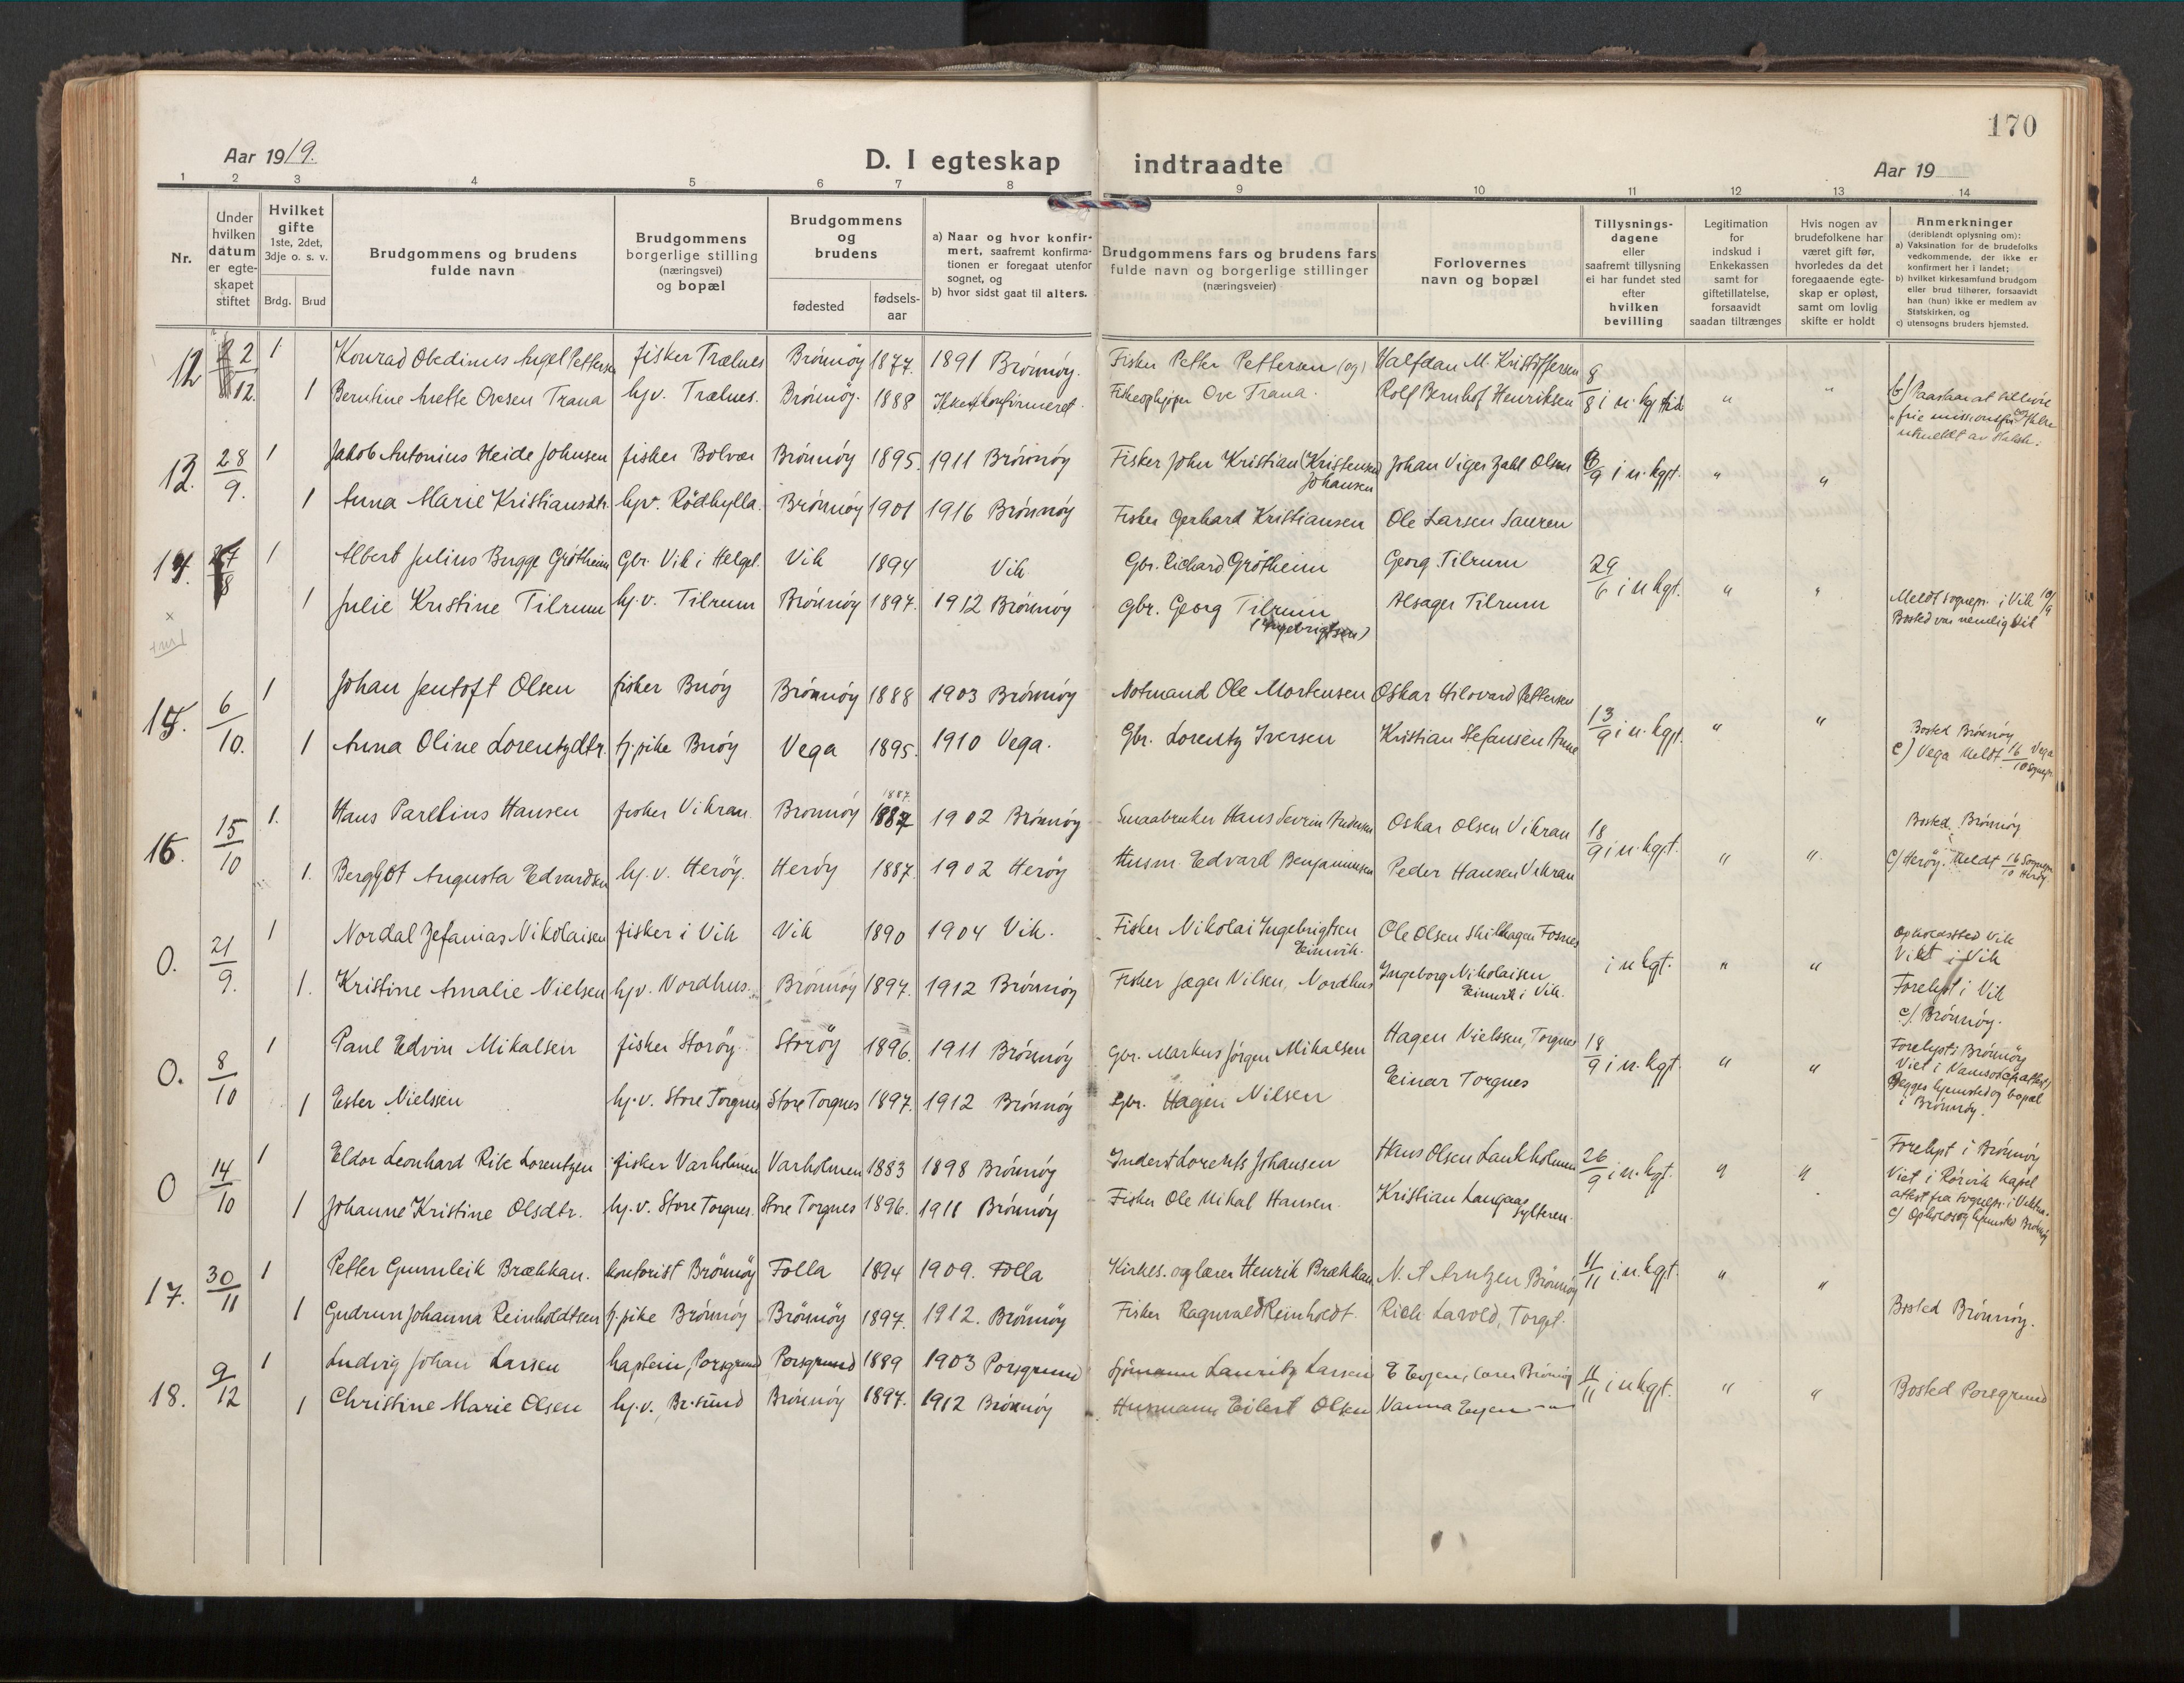 170
Aar 1919.
D. I egteskap indtraadte
Aar 19
1 2 3 4 5 6 7 8 9 10 11 12 13 14
Nr.
Under hvilken datum er egteskapet stiftet
Hvilket gifte 1ste, 2det, 3dje o. s. v.
Brdg. Brud
Brudgommens og brudens fulde navn
Brudgommens borgerlige stilling (næringsvei) og bopæl
Brudgommens og brudens
fødested
fødselsaar
a) Naar og hvor konfirmert, saafremt konfirmationen er foregaat utenfor sognet, og
b) hvor sidst gaat til alters.
Brudgommens fars og brudens fars fulde navn og borgerlige stillinger (næringsveier)
Forlovernes navn og bopæl
Tillysningsdagene eller saafremt tillysning ei har fundet sted efter hvilken bevilling
Legitimation for indskud i Enkekassen samt for giftetillatelse, forsaavidt saadan tiltrænges
Hvis nogen av brudefolkene har været gift før, hvorledes da det foregaaende egteskap er opløst, samt om lovlig skifte er holdt
Anmerkninger (deriblandt oplysning om):
a) Vaksination for de brudefolks vedkommende, der ikke er konfirmert her i landet;
b) hvilket kirkesamfund brudgom eller brud tilhører, forsaavidt han (hun) ikke er medlem av Statskirken, og
c) utensogns bruders hjemsted.
12 2/12. 1 Konrad Obedinus Angel Pettersen fisker Trælnes Brönnöy 1877. 1891 Brönnöy. Fisker Petter Pettersen (og) Halfdan M. Kristoffersen 8/8 i n. kgt
1 Berntine Anette Ovesen Trana hj.v. Trælnes. Brönnöy. 1888 Ikke konfirmeret. Ove Trana. Rolf Bernhof Henriksen " "
13. 28/9. 1 Jakob Antonius Heide Johnsen fisker Bolvær Brönnöy 1895. 1911 Brönnöy Fisker John Kristian (Kristensen) Johansen Johan Viger Zahl Olsen /9 i n. kgt. " "
1 Anna Marie Kristiansdtr. hjv. Rödhylla. Brönnöy 1901 1916 Brönnöy Fisker Gerhard Kristiansen Ole Larsen Sauren
14. 1 Albert Julius Bugge Grötheim Gbr. Vik i Helgel. Vik 1894 Vik Gbr. Richard Grötheim Georg Tilrum 29/6 i n kgt. " "
1 Julie Kristine Tilrum hj.v. Tilrum Brönnöy 1897. 1912 Brönnöy Gbr. Georg Tilrum (Ingebrigtsen) Alsager Tilrum Meldt sognepr. i Vik 10/9
Bosted var nemlig dit
15. 6/10. 1 Johan Jentoft Olsen fisker Buöy Brönnöy 1888 1903 Brönnöy Notmand Ole Mortensen Oskar Hilovard Pettersen 13/9 i n. kgt. " "
1 Anna Oline Lorentzdtr. tj.pike Buöy Vega 1895. 1910 Vega. Gbr. Lorentz Iversen Kristian Stefansen Bosted Brönnöy
c) Vega Meldt 16/10 Vega sognepr.
16. 15/10 1. Hans Parelius Hansen fisker Vikran. Brönnöy 1887. 1902 Brönnöy Smaabruker Hans Sevrin Andersen Oskar Olsen Vikran 18/9 i n. kgt. " " Bosted Brönnöy
1. Bergljot Augusta Edvardsen hj.v. Heröy. Heröy 1887. 1902 Heröy Husm. Edvard Benjaminsen Peder Hansen Vikran c/ Heröy. Meldt 16/10 Sognepr. Heröy
0. 21/9. 1 Nordal Zefanias Nikolaisen fisker i Vik Vik 1890 1904 Vik. Fisker Nikolai Ingebrigtsen Eimvik. Ole Olsen Skilhagen Fosnes i n kgt. " " Opholdssted Vik
Viet i Vik
1. Kristine Amalie Nielsen hjv. Nordhus. Brönnöy 1897. 1912 Brönnöy Fisker Jæger Nilsen, Nordhus Ingeborg Nikolaisen i Vik. Forelyst i Vik
c/. Brönnöy.
0. 8/10 1 Paul Edvin Mikalsen fisker Storöy Storöy 1896. 1911 Brönnöy Gbr. Markus Jörgen Mikalsen Hagen Nielssen, Torgnes 18/9 i n. kgt. " " Forelyst i Brönnöy
Viet i Namsos (attest)
1 Ester Nielssen hj.v. Store Torgnes Store Torgnes 1897. 1912 Brönnöy Gbr. Hagen Nilsen Einar Torgnes Begges hjemsted og bopæl
i Brönnöy.
0 14/10 1 Eldor Leonhard Rik Lorentzen fisker Varholmen Varholmen 1883 1898 Brönnöy Inderst Lorents Johansen Hans Olsen Lankholmen 26/9 i n. kgt. " " Forelyst i Brönnöy
Viet i Rörvik kapel
1 Johanne Kristine Olsdtr. hj.v. Store Torgnes. Store Torgnes 1896. 1911 Brönnöy Fisker Ole Mikal Hansen. Kristian Langaas Sylteren. attest fra sognepr. i
c/ Ophold og hjemsted Brönnöy
17. 30/11 1 Petter Gunnleik Brækkan. kontorist Brönnöy Folla 1894 1909. Folla Kirkes. og lærer Henrik Brækkan N. A Arntzen Brönnöy 11/11 i.n. kgt. " "
1 Gudrun Johanna Reinholdtsen tj.pike Brönnöy Brönnöy 1897. 1912. Brönnöy Fisker Ragnvald Reinholdt. Rich Larold, Torget. Bosted Brönnöy.
18. 9/12 1 Ludvig Johan Larsen kaptein, Porsgrund Porsgrund 1889 1903 Porsgrund Sjömann Lauritz Larsen E Eyjen, Brönnöy 11/11 i n kgt. " " Bosted Porsgrund
1 Christine Marie Olsen hj.v., Br.sund Brönnöy 1897. 1912 Brönnöy Husmann Eilert Olsen Vanna Eyjen